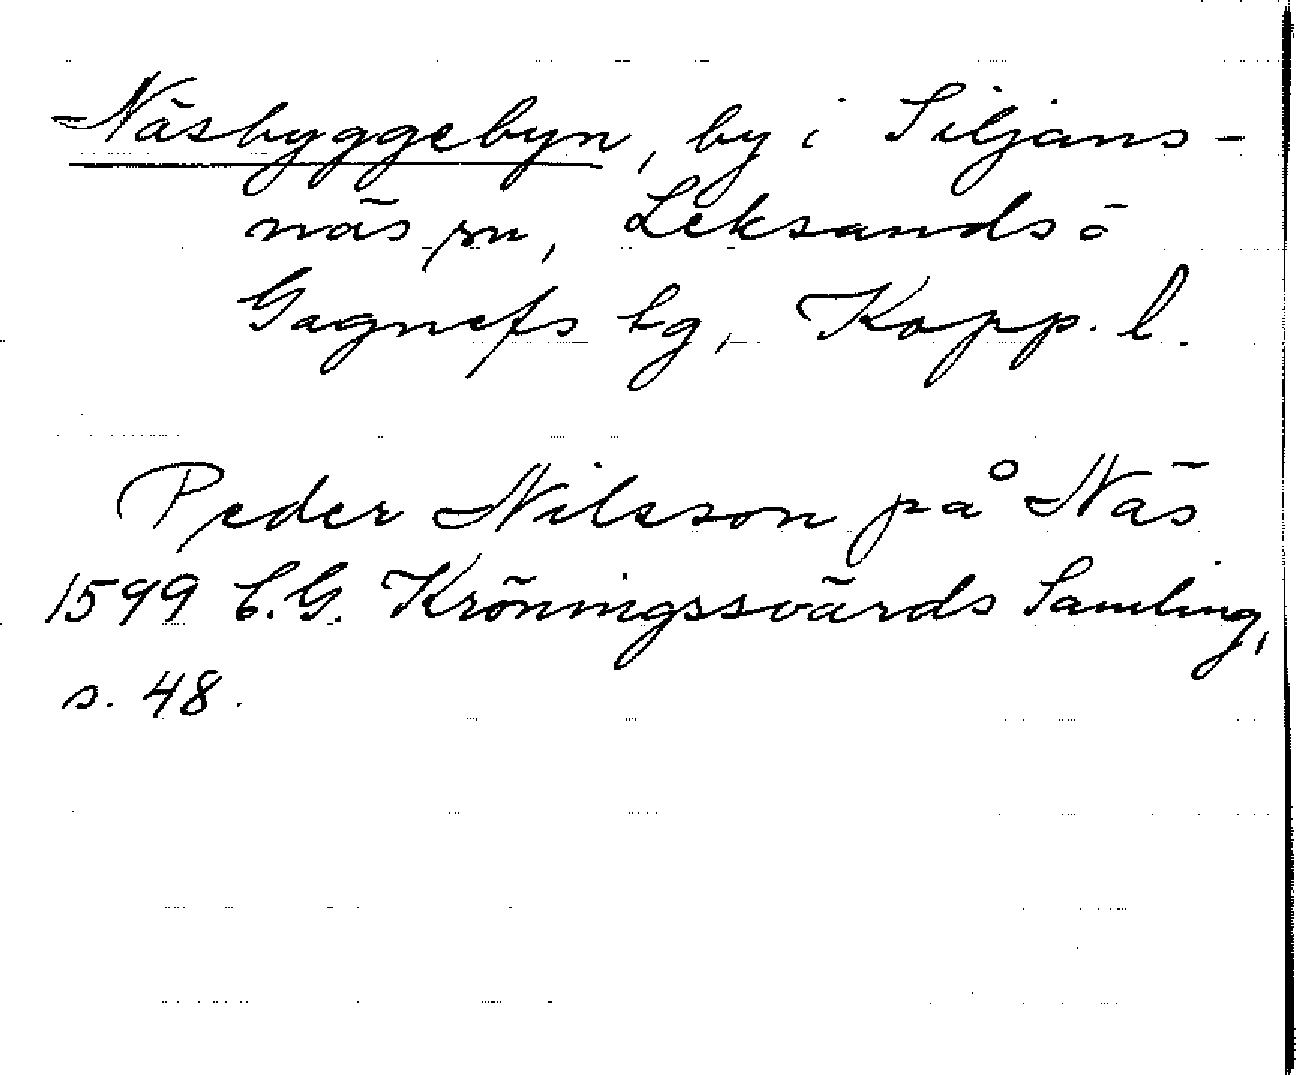 Näsbyggebyn, by i Siljans-
näs sn, Leksands o
Gagnefs tg, Kopp. l.
Peder Nilsson på Näs
1599 C.G. Kröningssvärds Samling,
s. 48.